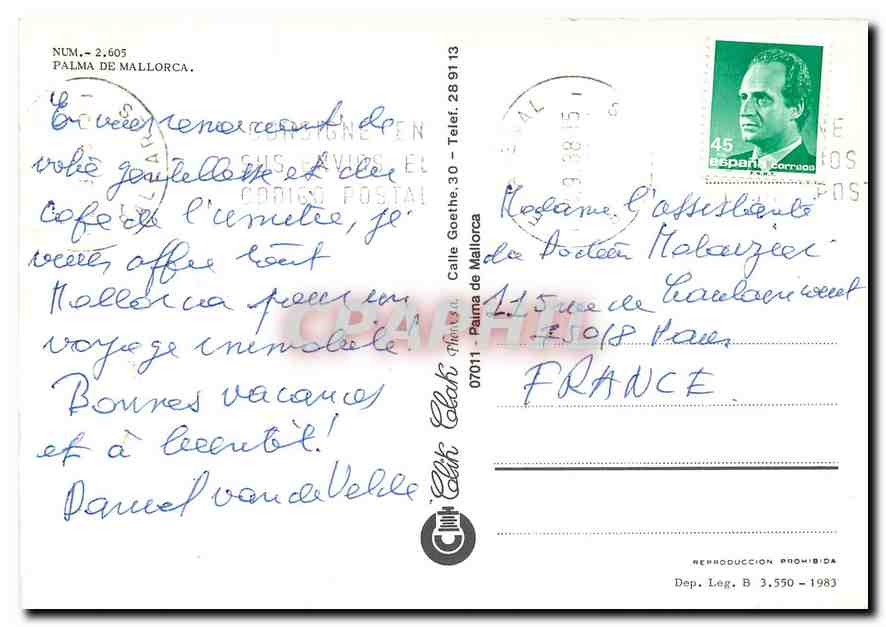 NUM.- 2.605
PALMA DE MALLORCA.
En vous remerciant de
votre gentillesse et du
café de l'amitié, je
vous offre tout
Mallorca pour un
voyage immobile!
Bonnes vacances
et à bientôt!
Daniel van de Velde
CONSIGNE EN
SUS ENVIOS EL
CODIGO POSTAL
Clik Clak Photo s.a. Calle Goethe, 30 - Telef. 28 91 13
07011 - Palma de Mallorca
45
españa correos
Madame l'assistante
du Docteur
115 rue de Caulaincourt
75018 Paris
FRANCE
CPARHIL
REPRODUCCION PROHIBIDA
Dep. Leg. B 3.550 - 1983